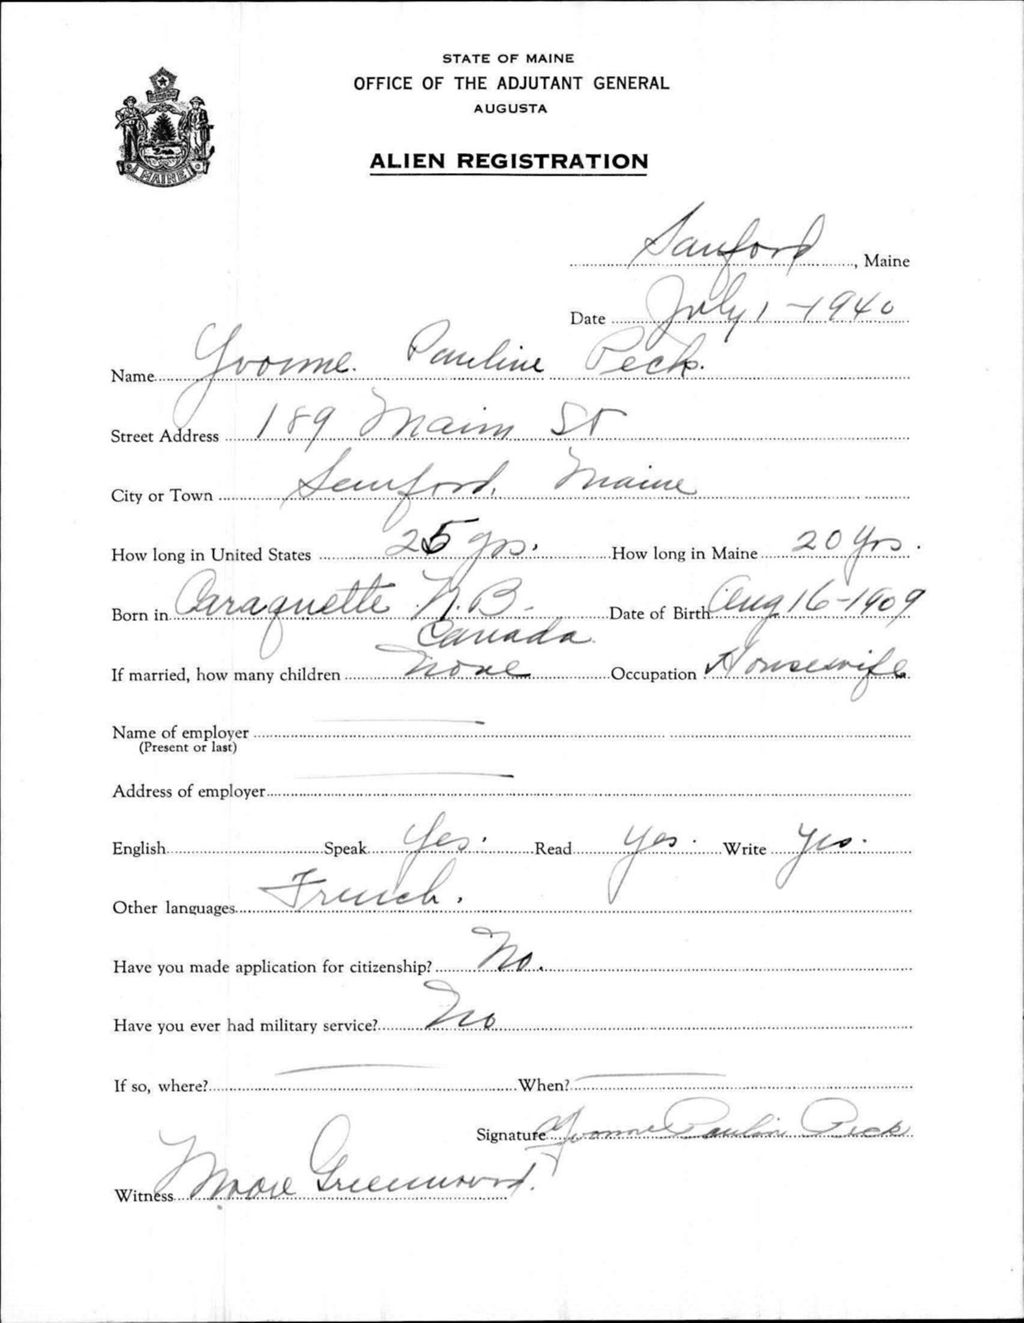 STATE OF MAINE
OFFICE OF THE ADJUTANT GENERAL
AUGUSTA
ALIEN REGISTRATION
MAINE
Sanford, Maine
Date July 1-1940
Name Yvonne Pauline Peck.
Street Address 189 Main St
City or Town Sanford, Maine
How long in United States 25 yrs. How long in Maine 20 Yrs.
Born in Caraquette N.B- Date of Birth Aug 16-1909
Canada
If married, how many children None Occupation Housewife
Name of employer
(Present or last)
Address of employer
English Speak Yes. Read Yes. Write Yes.
Other languages French.
Have you made application for citizenship? No.
Have you ever had military service? No
If so, where? When?
Signature Yvonne Paulin Peck
Witness Greenwood.